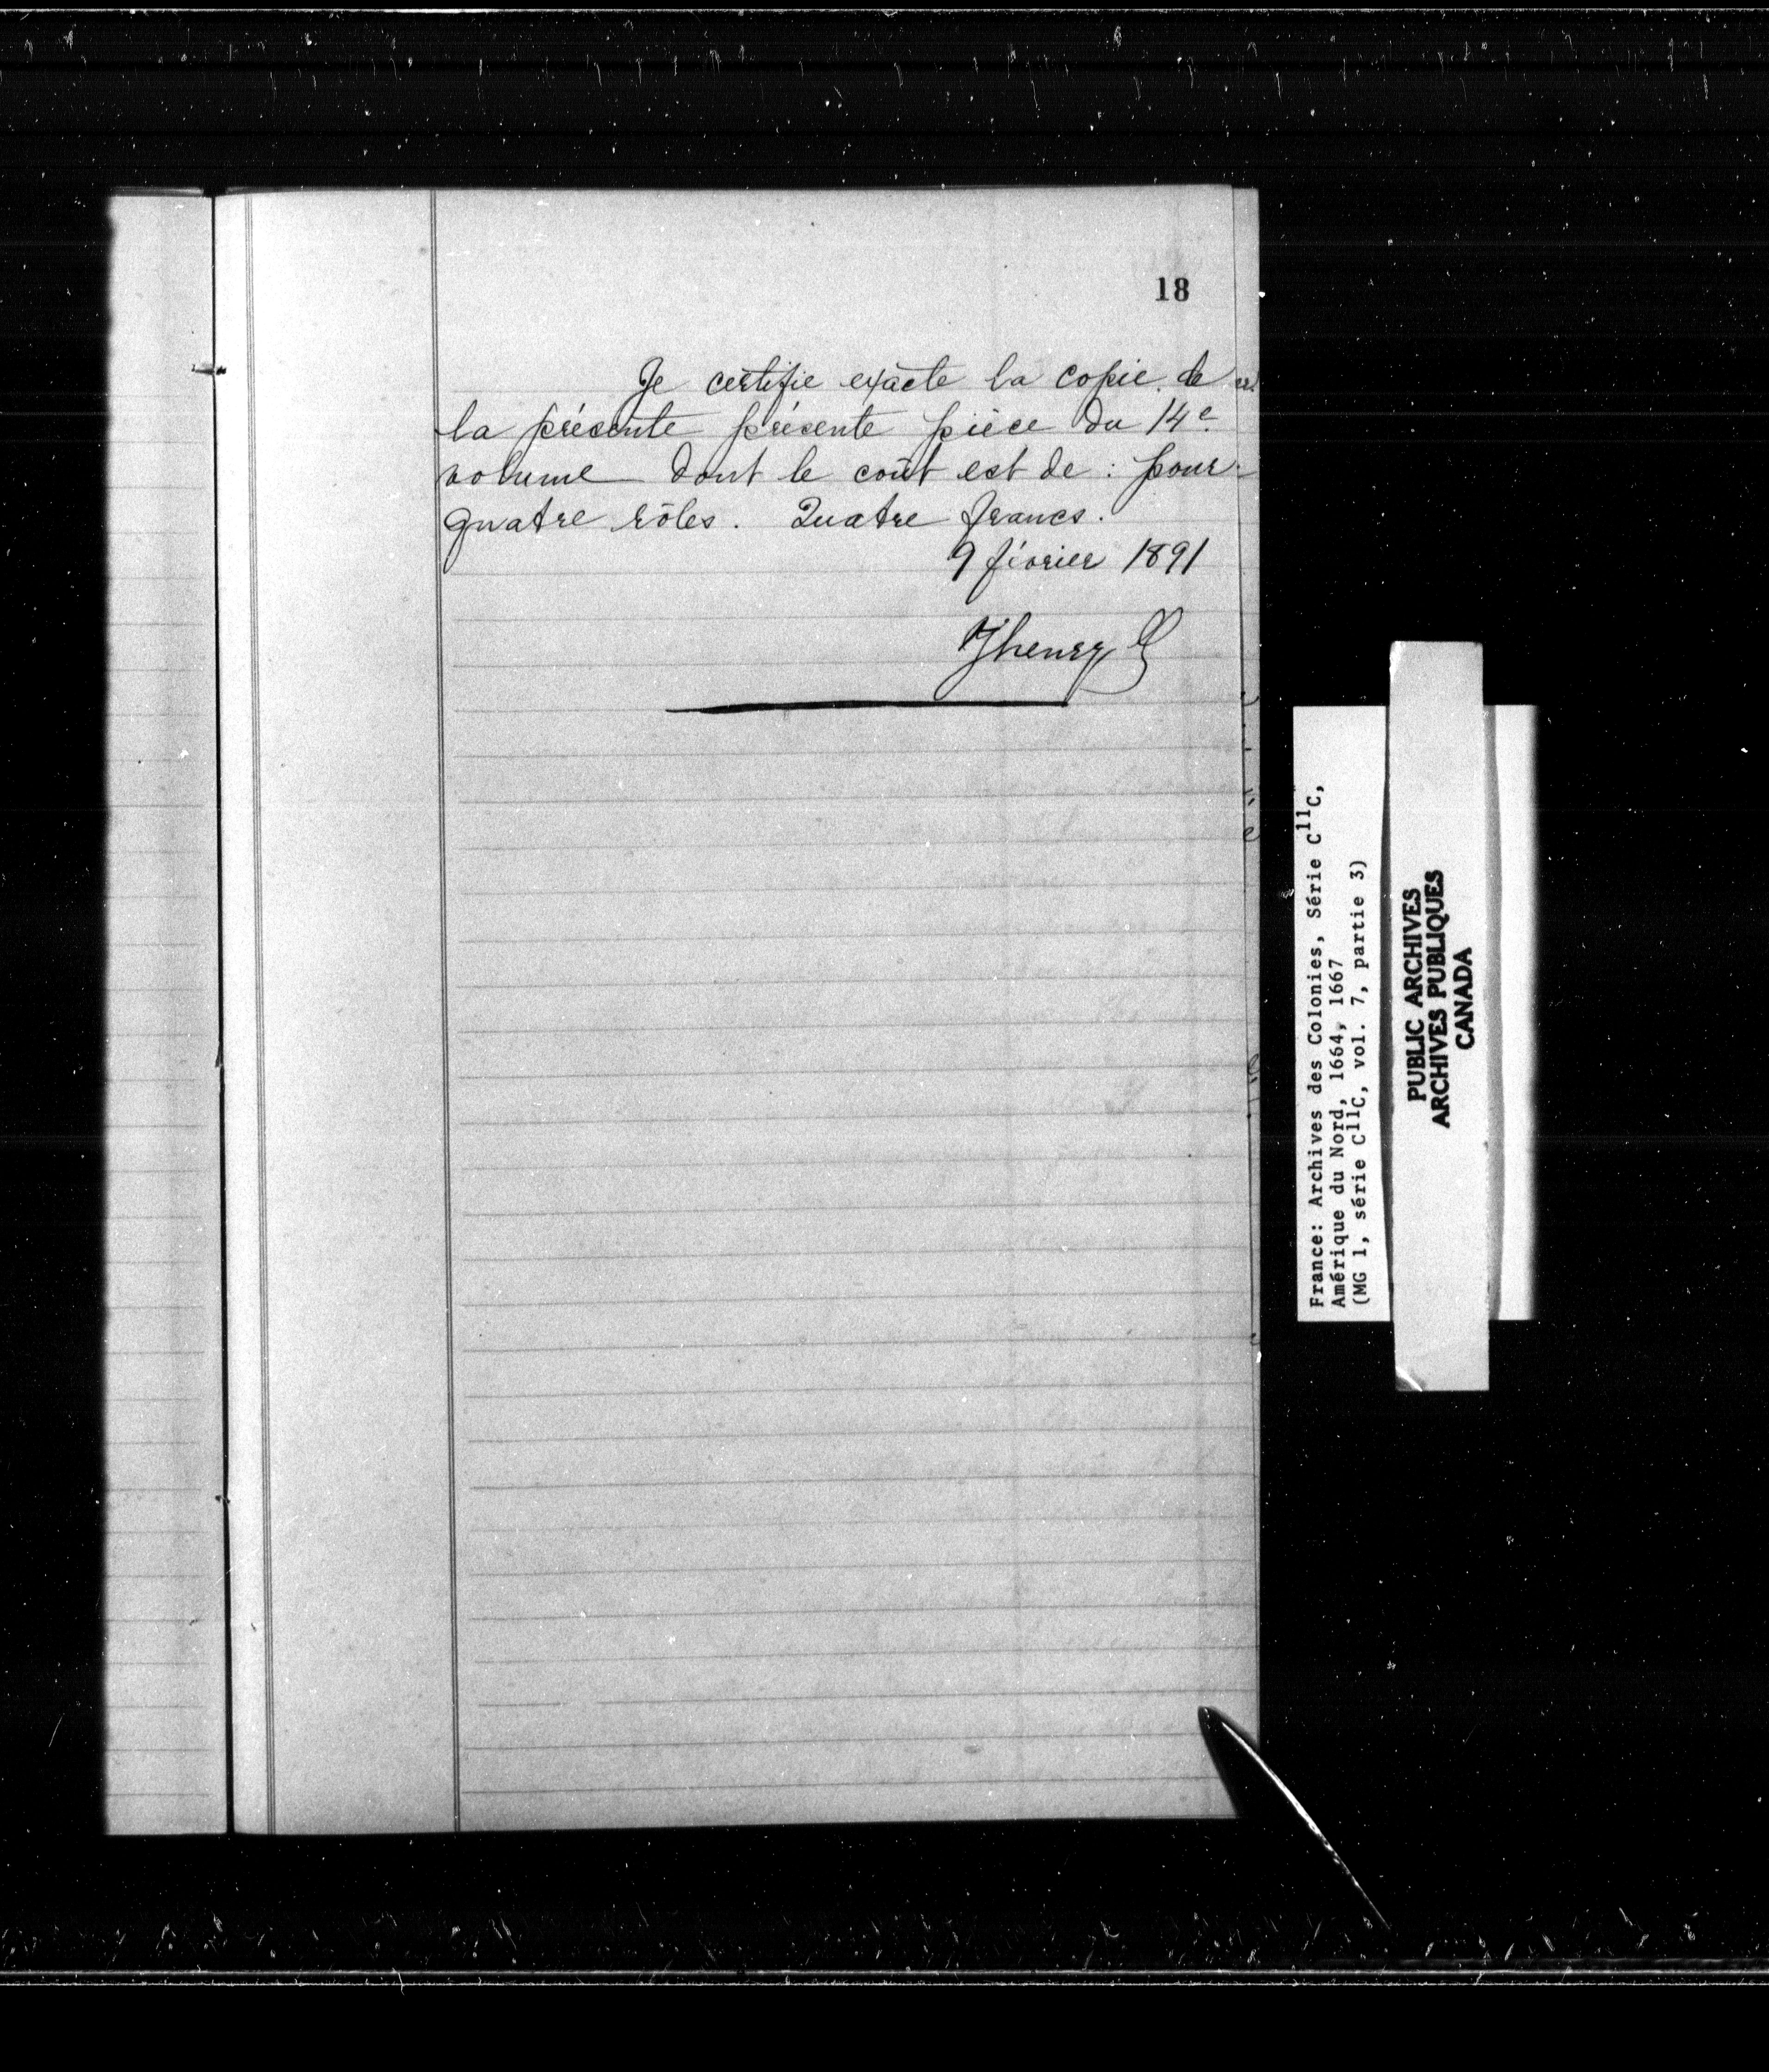 18
Je certifie exacte la copie de
la présente présente pièce du 14e
volume dont le coût est de : pour
quatre rôles. Quatre francs.
9 février 1891
Jhenry
France: Archives des Colonies, Série C11C,
Amérique du Nord, 1664, 1667
(MG 1, série C11C, vol. 7, partie 3)
PUBLIC ARCHIVES
ARCHIVES PUBLIQUES
CANADA